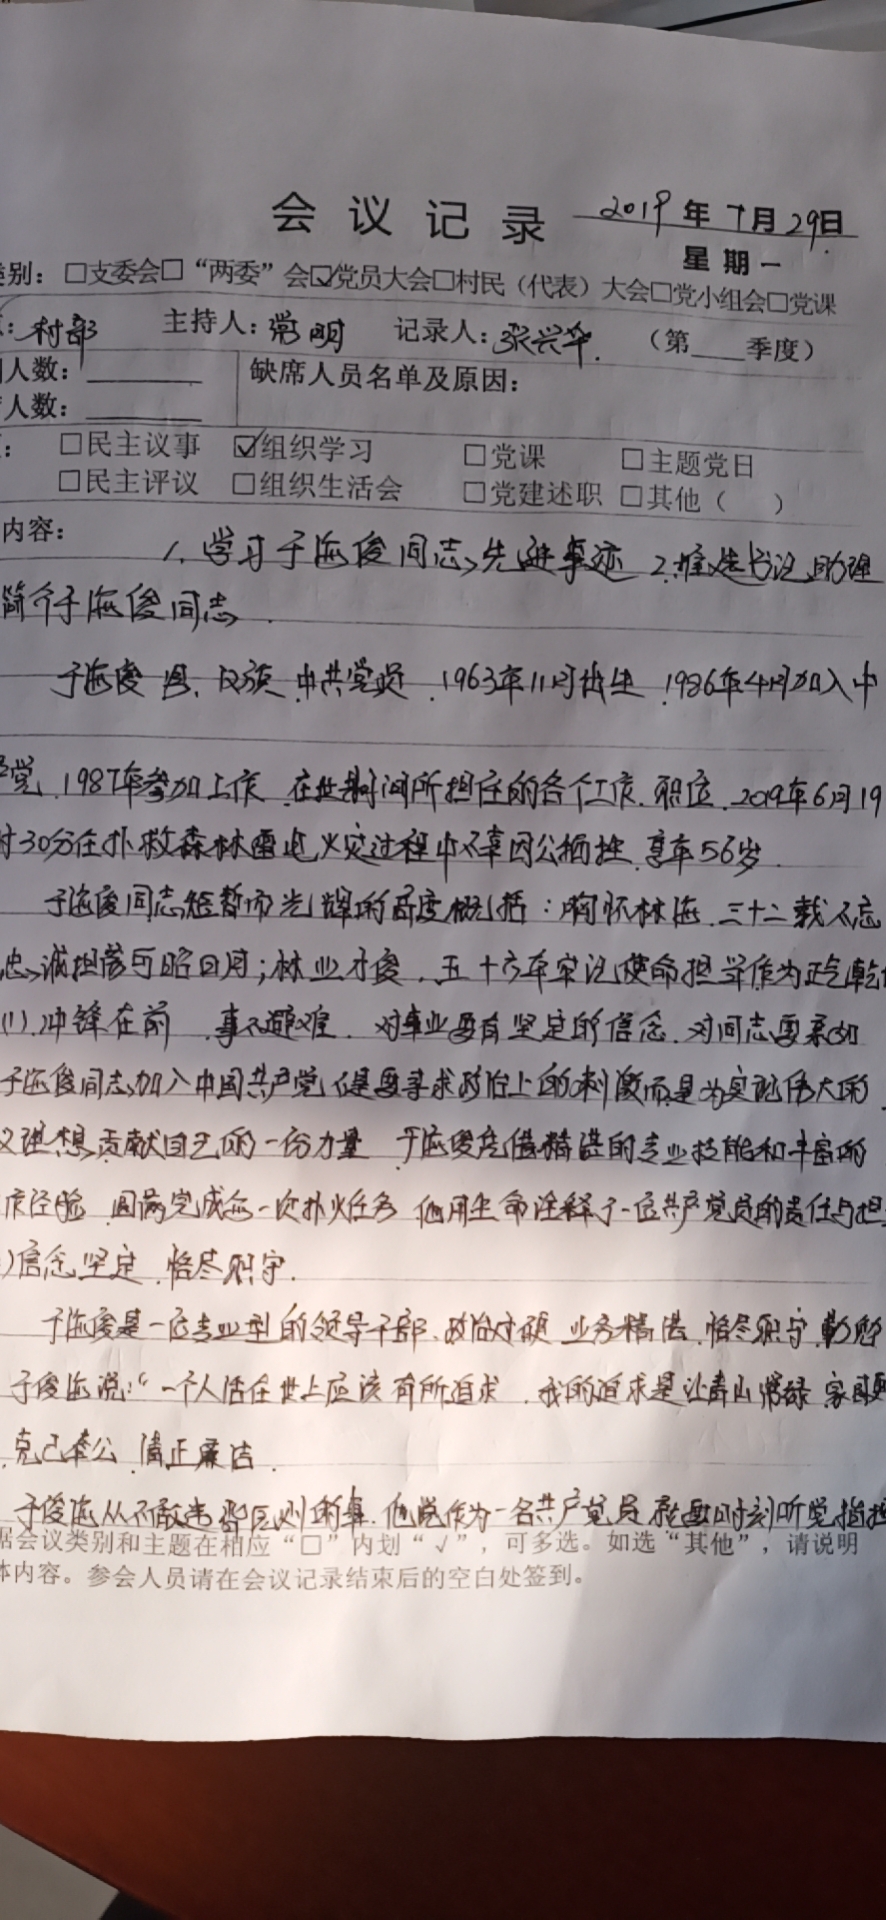 会议记录 2019年7月29日
星期一
类别：□支委会□“两委”会☑党员大会□村民（代表）大会□党小组会□党课
：村部 主持人：常明 记录人：张兴华. （第 季度）
人数： 缺席人员名单及原因：
人数：
： □民主议事 ☑组织学习 □党课 □主题党日
□民主评议 □组织生活会 □党建述职 □其他（ ）
内容：
1、学习于海俊同志先进事迹 2、推选书记助理
简介于海俊同志.
于海俊 男、汉族 中共党员 .1963年11月出生 .1986年4月加入中
党.1987年参加工作 .在世时间所担任的各个工作.职位.2019年6月19
时30分在扑救森林雷电火灾过程中不幸因公牺牲.享年56岁.
于海俊同志短暂而光辉的高度概括：胸怀林海.三十二载不忘
忠诚担当可昭日月；林业才俊.五十六年牢记使命担当作为正气乾
(1).冲锋在前 .事不避难. 对事业要有坚定的信念.对同志要亲如
于海俊同志加入中国共产党 不是要寻求政治上的刺激而是为实现伟大的
义理想贡献自己的一份力量 于海俊凭借精湛的专业技能和丰富的
经验 圆满完成每一次扑火任务 他用生命诠释了一位共产党员的责任与担
)信念坚定.恪尽职守.
于海俊是一位专业型的领导干部、政治过硬 业务精湛.恪尽职守.勤勉
于俊海说：“一个人活在世上应该有所追求.我的追求是让青山常绿 家园更
.克己奉公.清正廉洁.
于俊海从不敢违背原则的事.他说作为一名共产党员就要时刻听党指挥
据会议类别和主题在相应“□”内划“√”，可多选。如选“其他”，请说明
体内容。参会人员请在会议记录结束后的空白处签到。